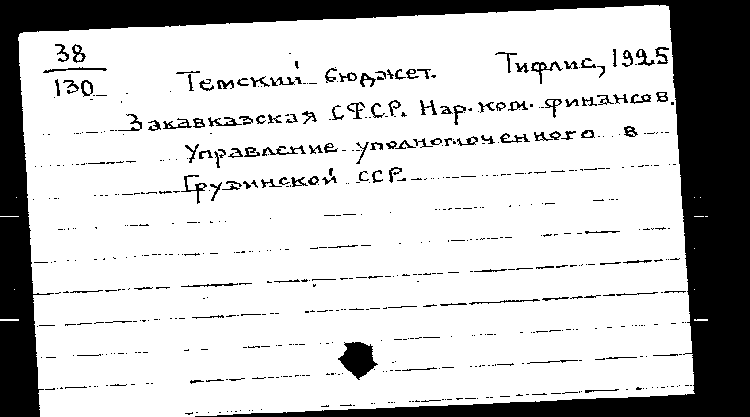 38
130
Темский бюджет. Тифлис, 1925
Закавказская СФСР. Нар. ком. финансов.
Управление уполномоченного в
Грузинской ССР.